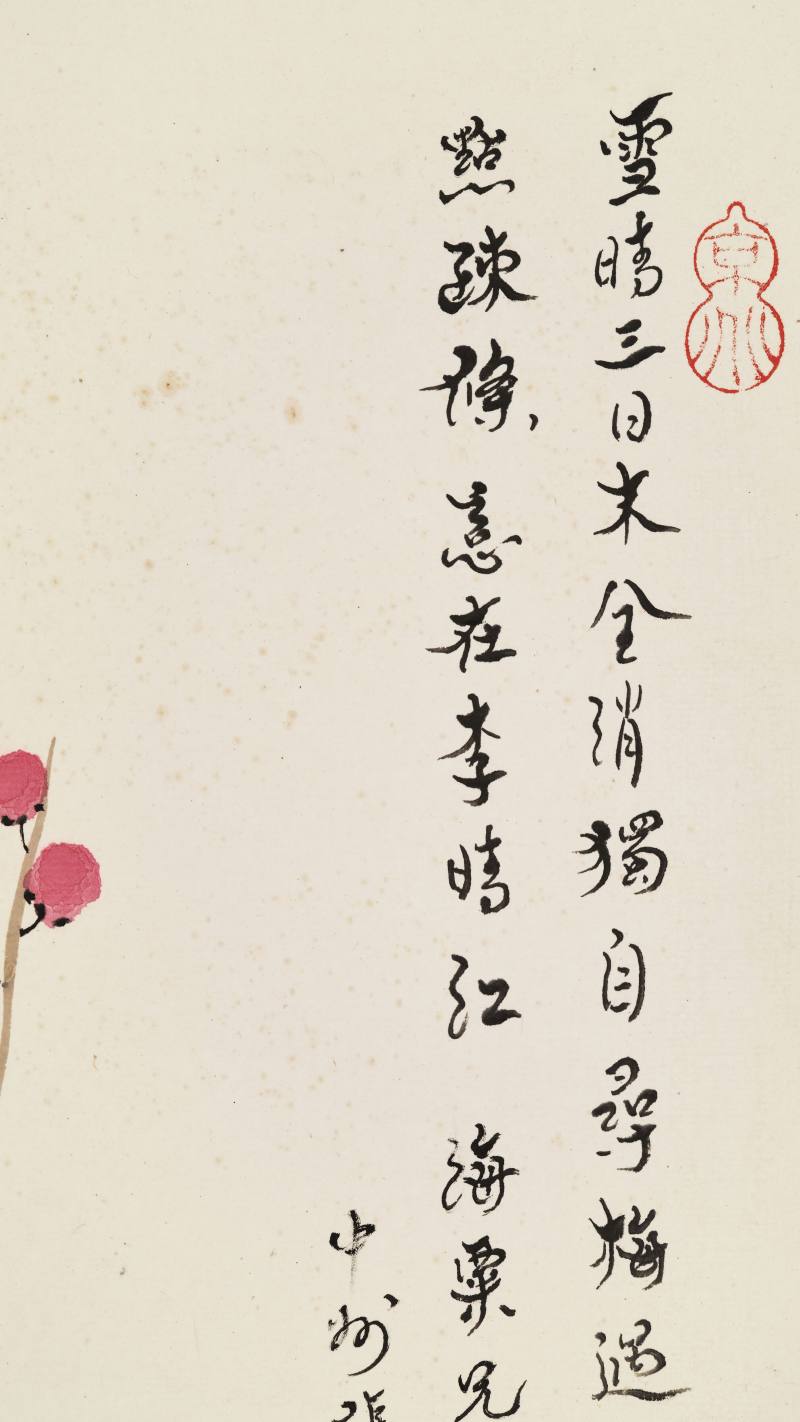 京兆
雪晴三日未全消獨自尋梅過
點疎條、意在李晴江 海粟兄
中州張